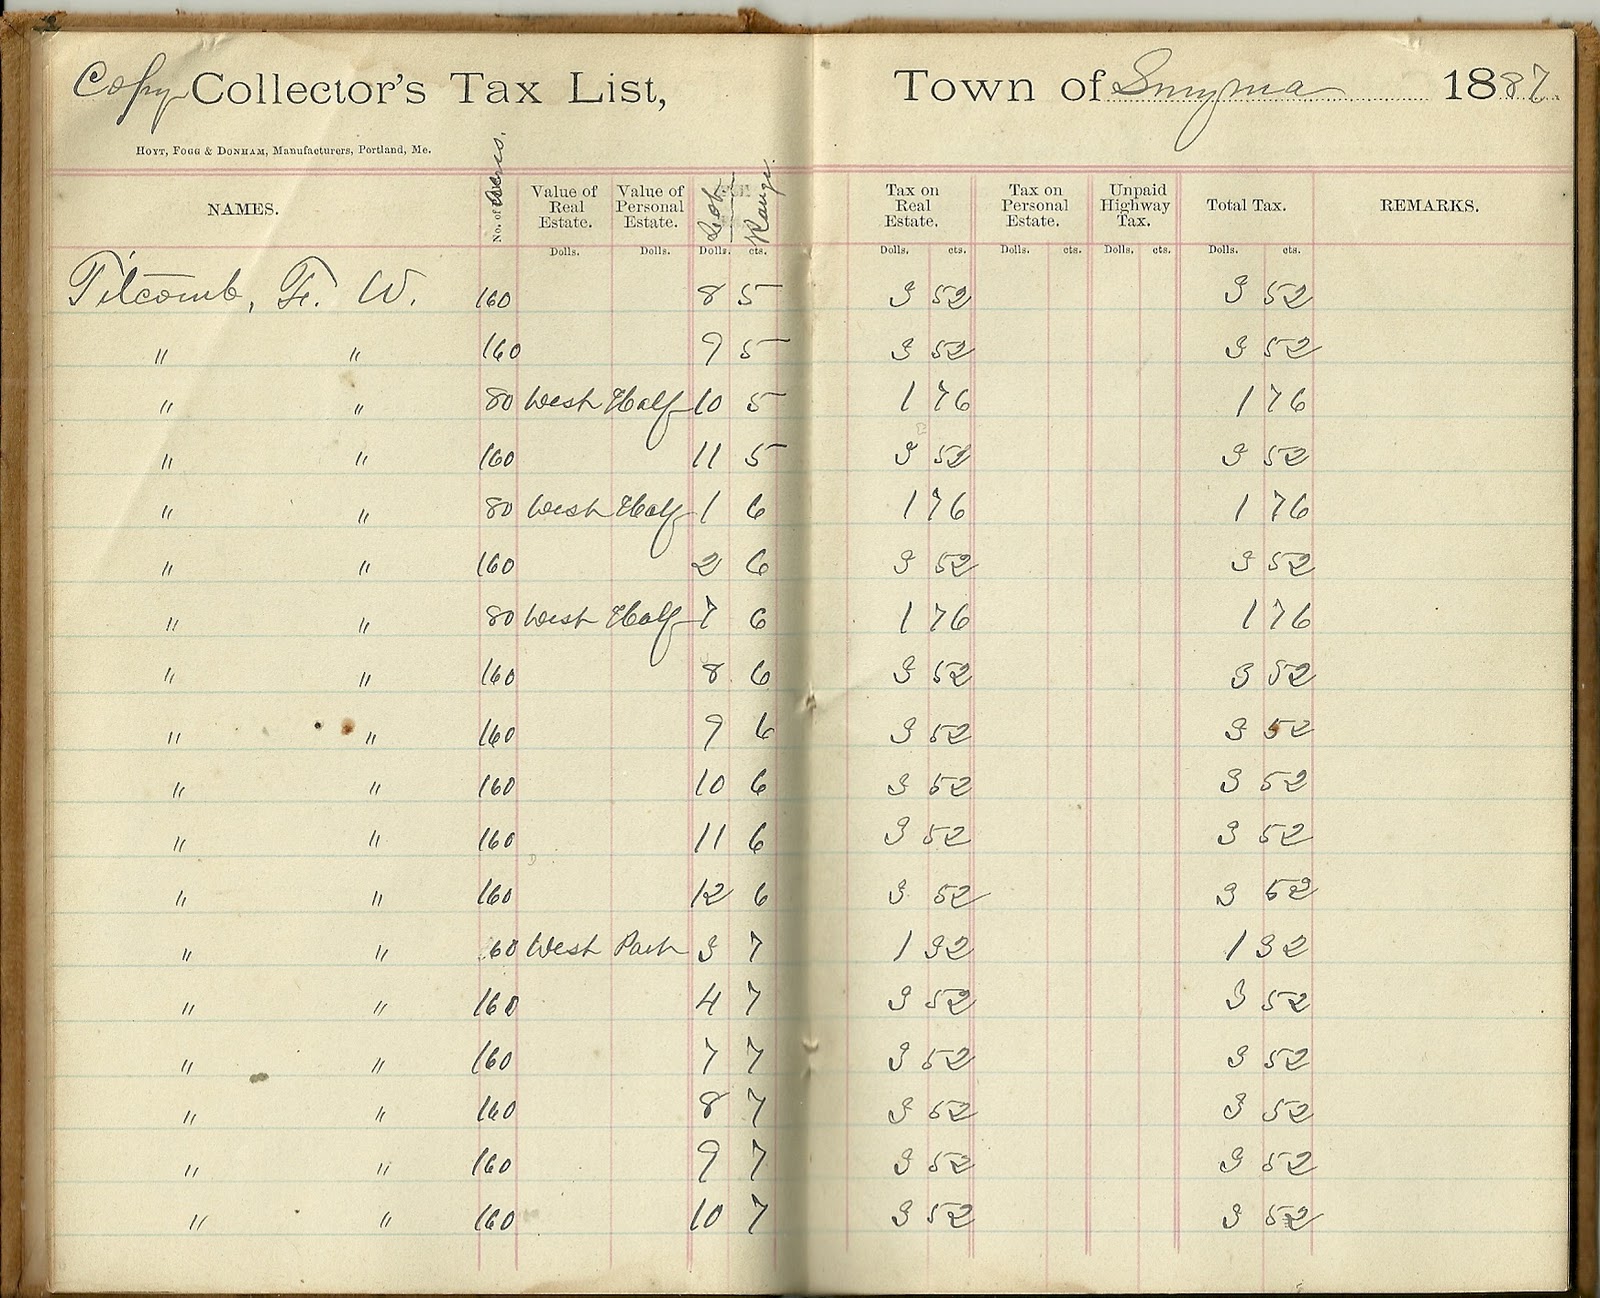 Copy Collector's Tax List, Town of Smyrna 1887.
Hoyt, Fogg & Donham, Manufacturers, Portland, Me.
NAMES. No. of Acres. Value of Real Estate. Value of Personal Estate. Lot Range. Tax on Real Estate. Tax on Personal Estate. Unpaid Highway Tax. Total Tax. REMARKS.
Dolls. Dolls. Dolls. cts. Dolls. cts. Dolls. cts. Dolls. cts. Dolls. cts.
Titcomb, F. W. 160 8 5 3 52 3 52
" " 160 9 5 3 52 3 52
" " 80 West Half 10 5 1 76 1 76
" " 160 11 5 3 52 3 52
" " 80 West Half 1 6 1 76 1 76
" " 160 2 6 3 52 3 52
" " 80 West Half 7 6 1 76 1 76
" " 160 8 6 3 52 3 52
" " 160 9 6 3 52 3 52
" " 160 10 6 3 52 3 52
" " 160 11 6 3 52 3 52
" " 160 12 6 3 52 3 52
" " 60 West Part 3 7 1 32 1 32
" " 160 4 7 3 52 3 52
" " 160 7 7 3 52 3 52
" " 160 8 7 3 52 3 52
" " 160 9 7 3 52 3 52
" " 160 10 7 3 52 3 52